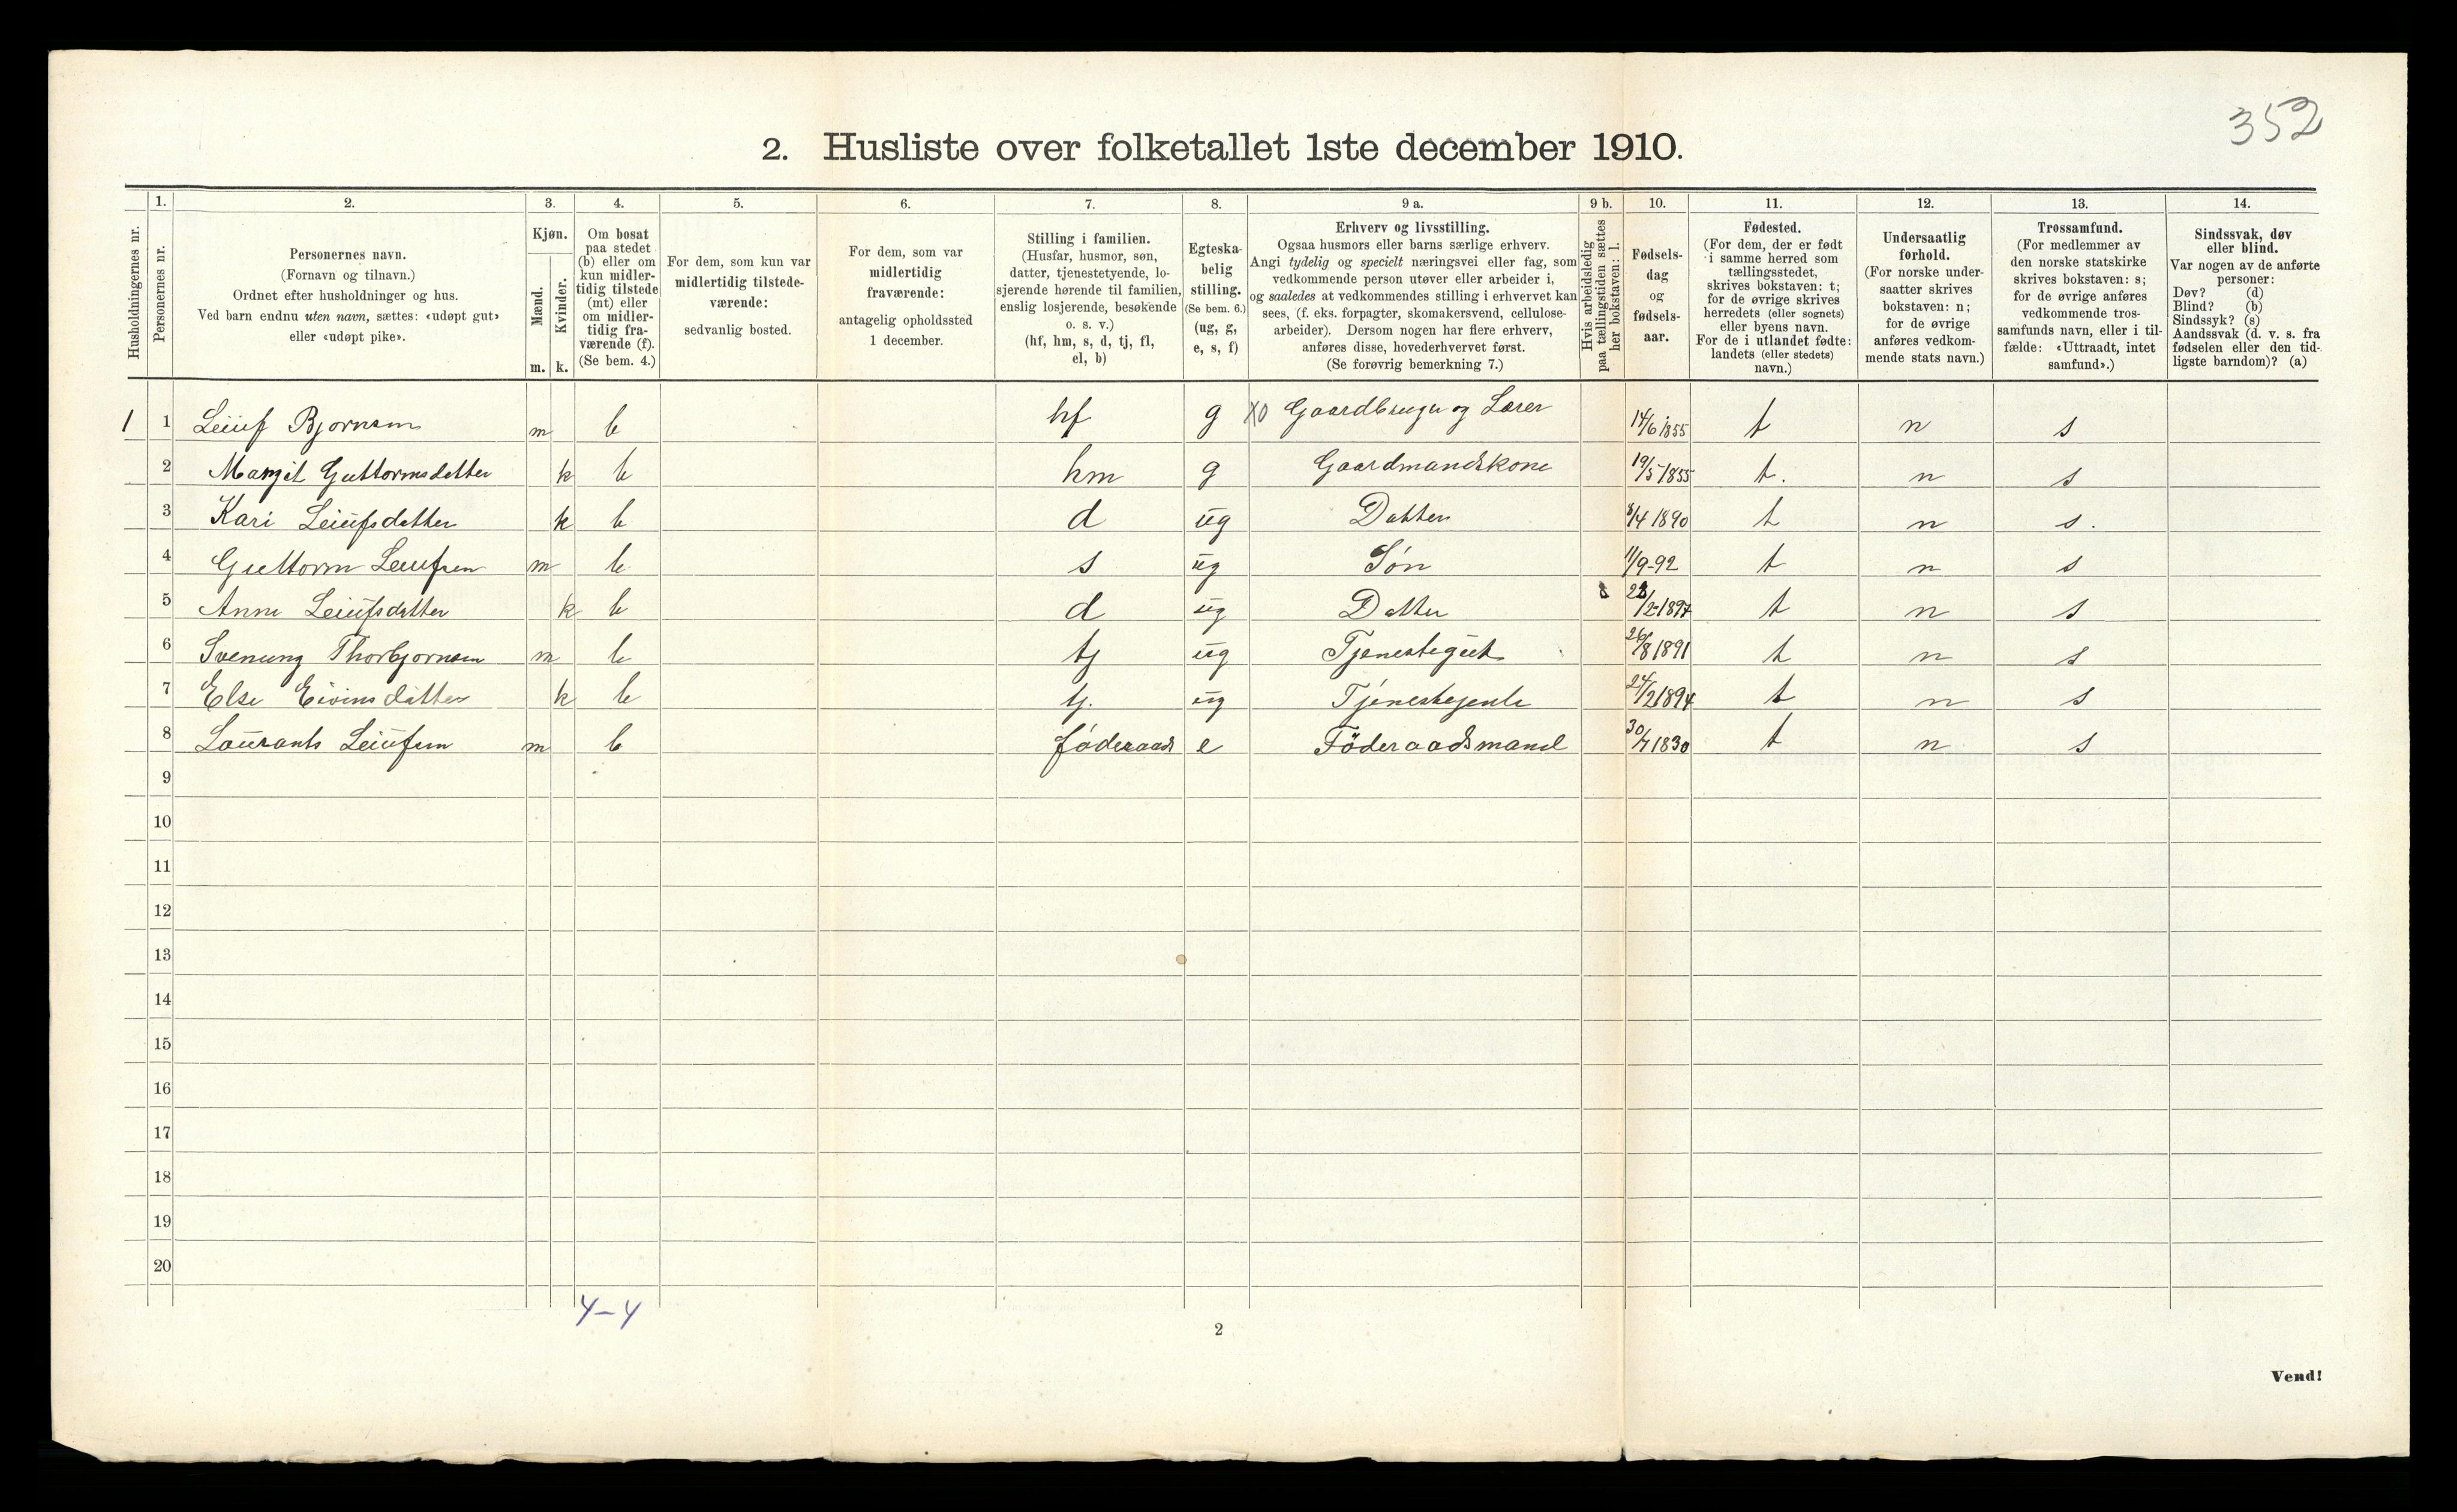 352
2. Husliste over folketallet 1ste december 1910.
Husholdningernes nr.
1.
Personernes nr.
2.
Personernes navn.
(Fornavn og tilnavn.)
Ordnet efter husholdninger og hus.
Ved barn endnu uten navn, sættes: «udøpt gut»
eller «udøpt pike».
3.
Kjøn.
Mænd.
Kvinder.
m. k.
4.
Om bosat
paa stedet
(b) eller om
kun midler-
tidig tilstede
(mt) eller
om midler-
tidig fra-
værende (f).
(Se bem. 4.)
5.
For dem, som kun var
midlertidig tilstede-
værende:
sedvanlig bosted.
6.
For dem, som var
midlertidig
fraværende:
antagelig opholdssted
1 december.
7.
Stilling i familien.
(Husfar, husmor, søn,
datter, tjenestetyende, lo-
sjerende hørende til familien,
enslig losjerende, besøkende
o. s. v.)
(hf, hm, s, d, tj, fl,
el, b)
8.
Egteska-
belig
stilling.
(Se bem. 6.)
(ug, g,
e, s, f)
9 a.
Erhverv og livsstilling.
Ogsaa husmors eller barns særlige erhverv.
Angi tydelig og specielt næringsvei eller fag, som
vedkommende person utøver eller arbeider i,
og saaledes at vedkommendes stilling i erhvervet kan
sees, (f. eks. forpagter, skomakersvend, cellulose-
arbeider). Dersom nogen har flere erhverv,
anføres disse, hovederhvervet først.
(Se forøvrig bemerkning 7.)
9 b.
Hvis arbeidsledig
paa tællingstiden sættes
her bokstaven: l.
10.
Fødsels-
dag
og
fødsels-
aar.
11.
Fødested.
(For dem, der er født
i samme herred som
tællingsstedet,
skrives bokstaven: t;
for de øvrige skrives
herredets (eller sognets)
eller byens navn.
For de i utlandet fødte:
landets (eller stedets)
navn.)
12.
Undersaatlig
forhold.
(For norske under-
saatter skrives
bokstaven: n;
for de øvrige
anføres vedkom-
mende stats navn.)
13.
Trossamfund.
(For medlemmer av
den norske statskirke
skrives bokstaven: s;
for de øvrige anføres
vedkommende tros-
samfunds navn, eller i til-
fælde: «Uttraadt, intet
samfund».)
14.
Sindssvak, døv
eller blind.
Var nogen av de anførte
personer:
Døv? (d)
Blind? (b)
Sindssyk? (s)
Aandssvak (d. v. s. fra
fødselen eller den tid-
ligste barndom)? (a)
1 1 Leiuf Bjornsen m b hf g X0 Gaardbruger og Lærer 14/6 1855 t n s
2 Margit Guttormsdatter k b hm g Gaardmandskone 19/5 1855 t. n s
3 Kari Leiufsdatter k b d ug Datter 8/4 1890 t n s.
4 Guttorm Leiufsen m b s ug Søn 11/9-92 t n s
5 Anne Leiufsdatter k b d ug Datter /2-1897 t n s
6 Svenung Thorbjornsen m b tj ug Tjenestegut 26/8 1891 t n s
7 Else Eivinsdatter k b tj. ug Tjenestejente 24/2 1894 t n s
8 Laurants Leiufsen m b føderaads e Föderaadsmand 30/ 1830 t n s
9
10
11
12
13
14
15
16
17
18
19
20
4-4
2
Vend!